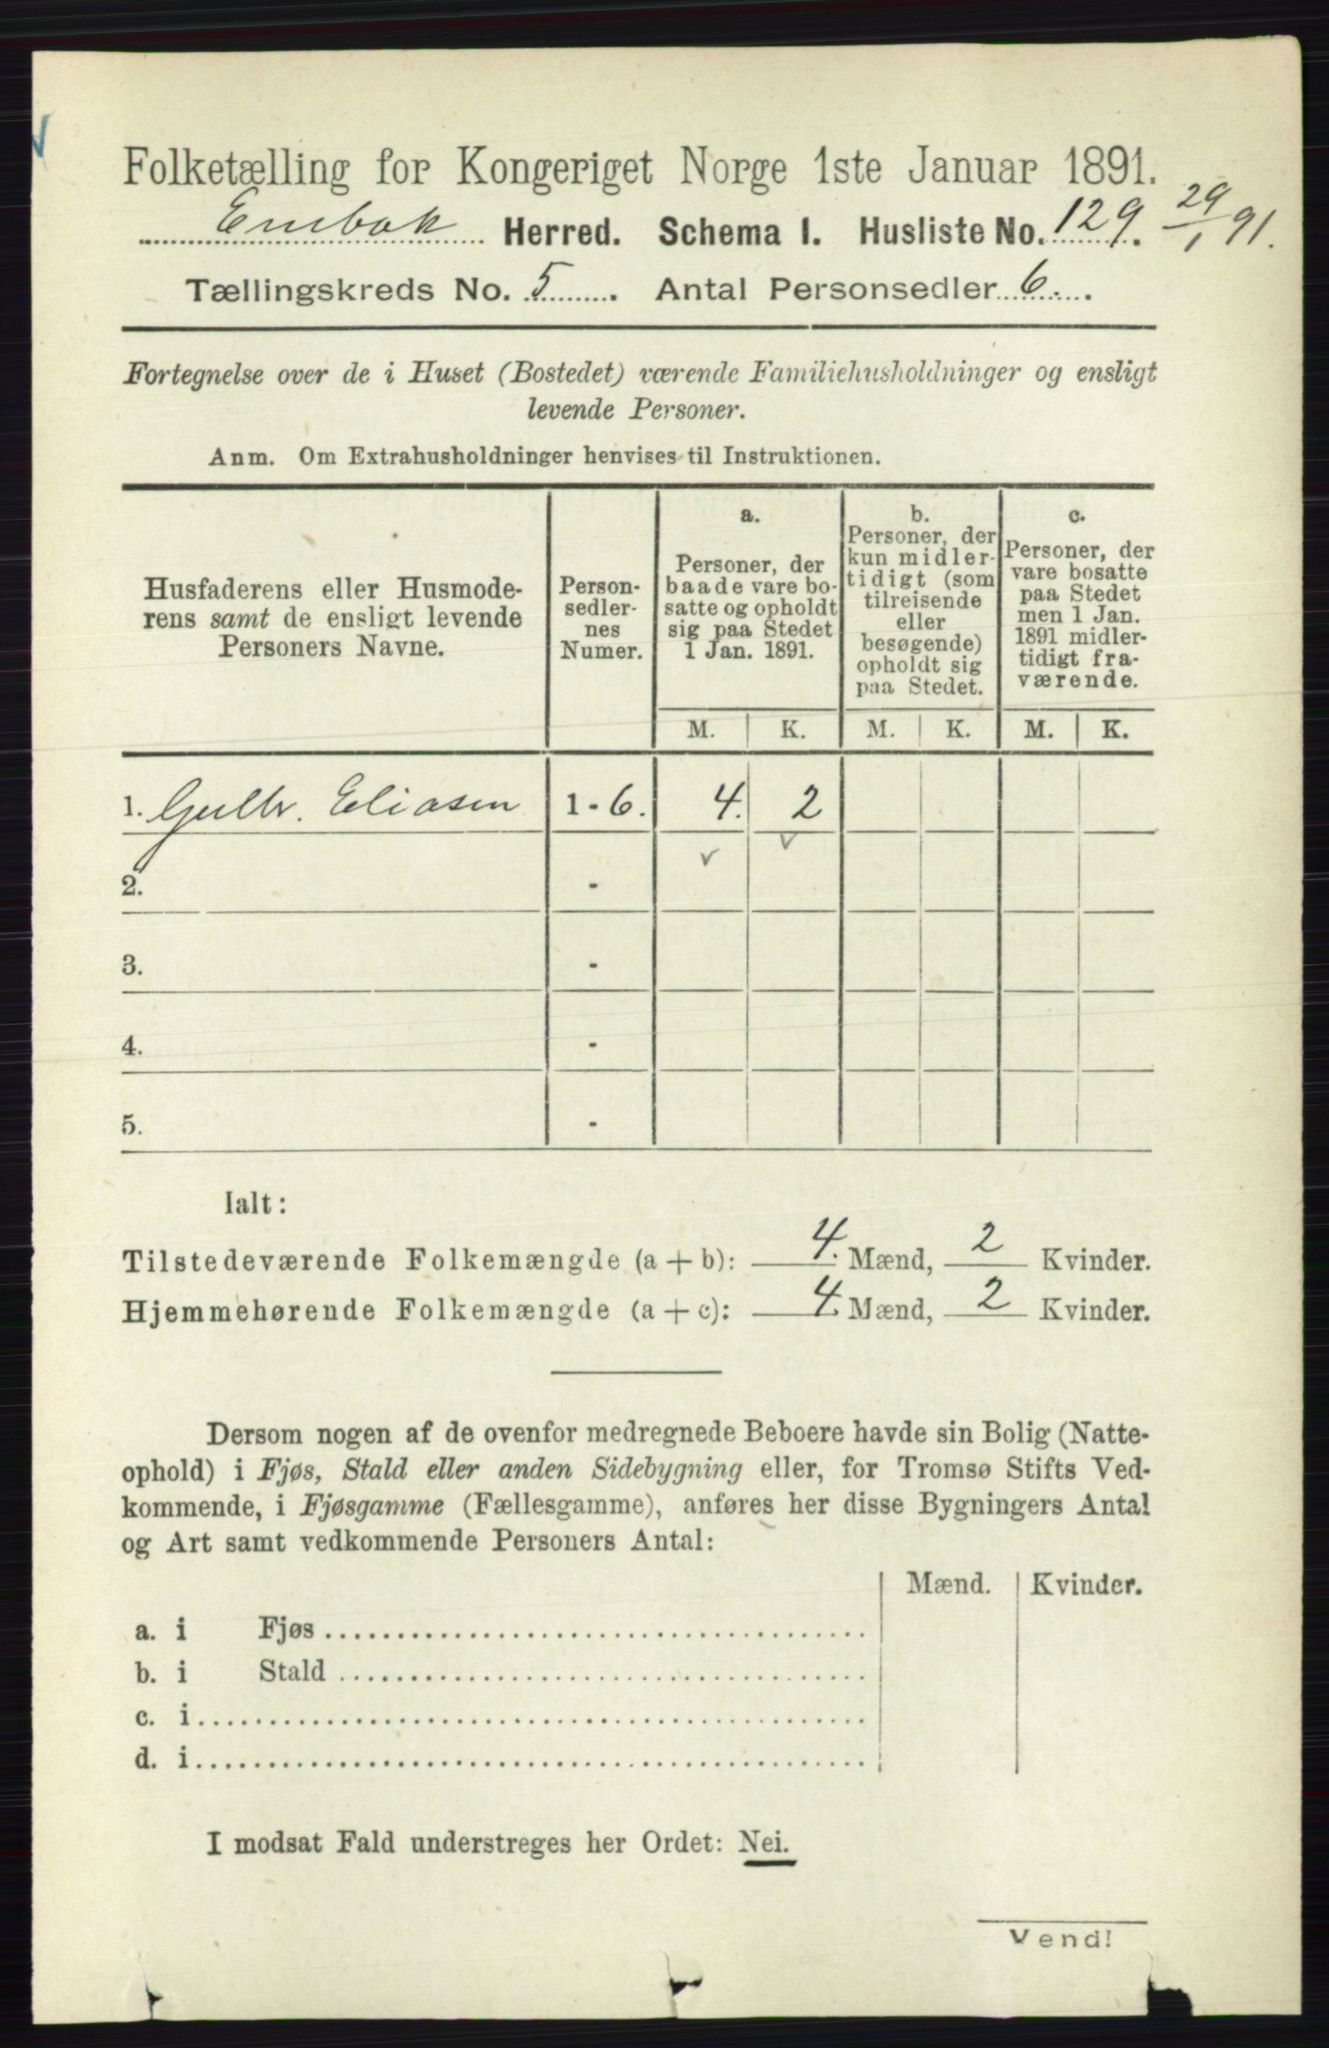 Folketælling for Kongeriget Norge 1ste Januar 1891.
Enebak Herred. Schema I. Husliste No. 129. 29/1 91.
Tællingskreds No. 5. Antal Personsedler 6.
Fortegnelse over de i Huset (Bostedet) værende Familiehusholdninger og ensligt
levende Personer.
Anm. Om Extrahusholdninger henvises til Instruktionen.
Husfaderens eller Husmode-
rens samt de ensligt levende
Personers Navne.
Person-
sedler-
nes
Numer.
a.
Personer, der
baade vare bo-
satte og opholdt
sig paa Stedet
1 Jan. 1891.
b.
Personer, der
kun midler-
tidigt (som
tilreisende
eller
besøgende)
opholdt sig
paa Stedet.
c.
Personer, der
vare bosatte
paa Stedet
men 1 Jan.
1891 midler-
tidigt fra-
værende.
M. K. M. K. M. K.
1. Gulbr. Eliasen 1 - 6. 4. 2
2. -
3. -
4. -
5. -
Ialt:
Tilstedeværende Folkemængde (a + b): 4. Mænd, 2 Kvinder.
Hjemmehørende Folkemængde (a + c): 4. Mænd, 2 Kvinder.
Dersom nogen af de ovenfor medregnede Beboere havde sin Bolig (Natte-
ophold) i Fjøs, Stald eller anden Sidebygning eller, for Tromsø Stifts Ved-
kommende, i Fjøsgamme (Fællesgamme), anføres her disse Bygningers Antal
og Art samt vedkommende Personers Antal:
Mænd. Kvinder.
a. i Fjøs
b. i Stald
c. i
d. i
I modsat Fald understreges her Ordet: Nei.
Vend!